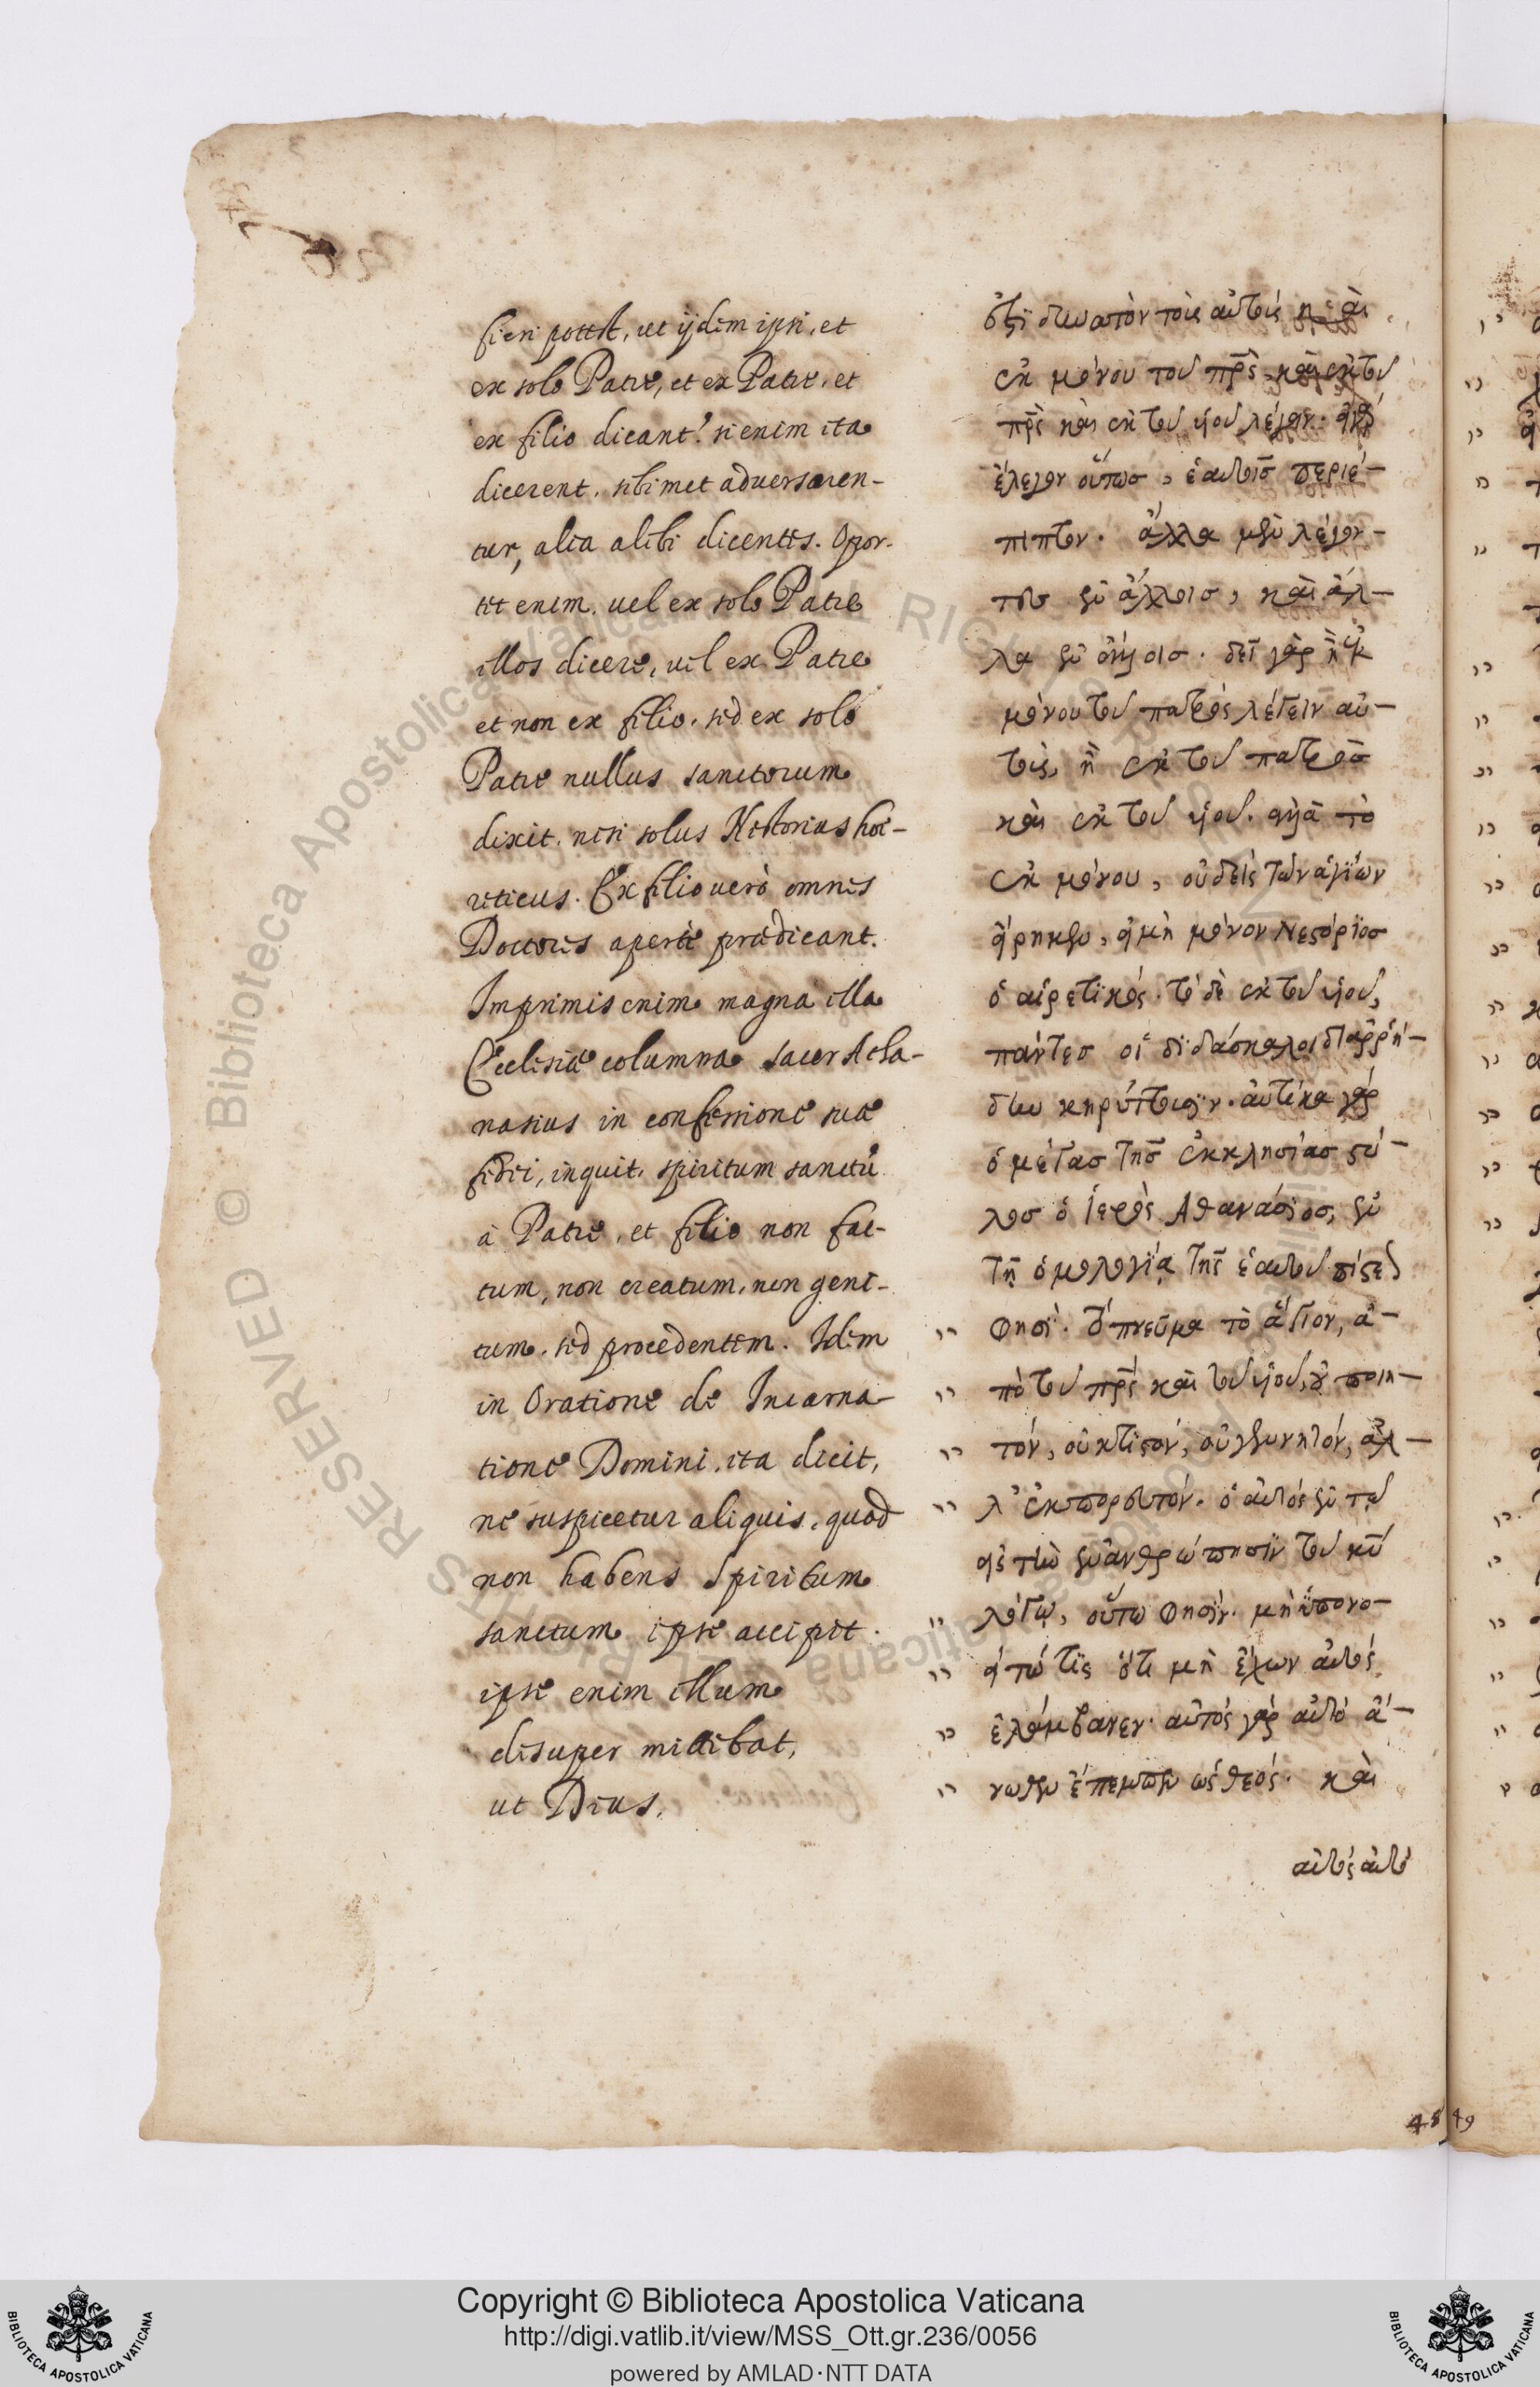 fieri potest, ut ijdem ipsi, et
ex solo Patre, et ex Patre, et
ex filio dicant? si enim ita
dicerent, sibimet adversaren-
tur, alia alibi dicentes. Opor-
tet enim, vel ex solo Patre
illos dicere, vel ex Patre
et non ex filio. sed ex solo
Patre nullus sanctorum
dixit, nisi solus Nestorius hoe-
reticus. Ex filio verò omnes
Doctores apertè praedicant.
Imprimis enim magna illa
Ecclesiae columna sacer Atha-
nasius in confessione suae
fidei, inquit, spiritum sanctū
à Patre, et filio non fac-
tum, non creatum, non geni-
tum, sed procedentem. Idem
in Oratione de Incarna-
tione Domini, ita dicit,
ne suspicetur aliquis, quod
non habens Spiritum
sanctum ipse accipit.
ipse enim illum
desuper mittibat,
ut Deus.
δυνατὸν τοὶς αὐτοίς
ἐκ μόνου τοῦ πρ̅ς̀ καὶ ἐκ τοῦ
πρ̅ς̀ καὶ ἐκ τοῦ υἱοῦ λέγειν.
ἔλεγον οὕτως, ἑαυτοῖς περιέ-
πιπτον. ἄλλα μὲν λέγον-
τες ἐν ἄλλοις, καὶ ἄλ-
λα ἐν ἐνίοις. δεῖ γὰρ ἢ ἐκ
μόνου τοῦ πατρὸς λέγειν αὐ-
τοὶς, ἢ ἐκ τοῦ πατρὸς
καὶ ἐκ τοῦ υἱοῦ. ἀλλὰ τὸ
ἐκ μόνου, οὐδεὶς τῶν ἁγίων
εἴρηκεν, εἰ μὴ μόνον Νεστόριος
ὁ αἱρετικός. τὸ δὲ ἐκ τοῦ υἱοῦ,
πάντες οἱ διδάσκαλοι διαῤῥή-
δην κηρύττουσιν. αὐτίκα γάρ
ὁ μέγας τῆς ἐκκλησίας στύ-
λος ὁ ἱερὸς Ἀθανάσιος, ἐν
τῇ ὁμολογίᾳ τῆς ἑαυτοῦ πίστεως
φησὶ. τὸ πνεῦμα τὸ ἅγιον, ἀ-
πὸ τοῦ πρ̅ς̀ καὶ τοῦ υἱοῦ, οὐ ποιη-
τόν, οὐ κτιστόν, οὐ γεννητόν, ἀλ-
λ' ἐκπορευτόν. ὁ αὐτὸς ἐν τῷ
εἰς τὴν ἐνανθρώπησιν τοῦ κ̅υ̅
λόγῳ, οὕτω φησίν. μὴ ὑπονο-
είτω τὶς ὅτι μὴ ἔχων αὐτὸς
ἐλάμβανεν. αὐτὸς γάρ αὐτὸ ἄ-
νωθεν ἔπεμπεν ὡς θεός. καὶ
αὐτὸς αὐτὸ
48
49
Copyright © Biblioteca Apostolica Vaticana
http://digi.vatlib.it/view/MSS_Ott.gr.236/0056
powered by AMLAD·NTT DATA
BIBLIOTECA APOSTOLICA VATICANA
BIBLIOTECA APOSTOLICA VATICANA